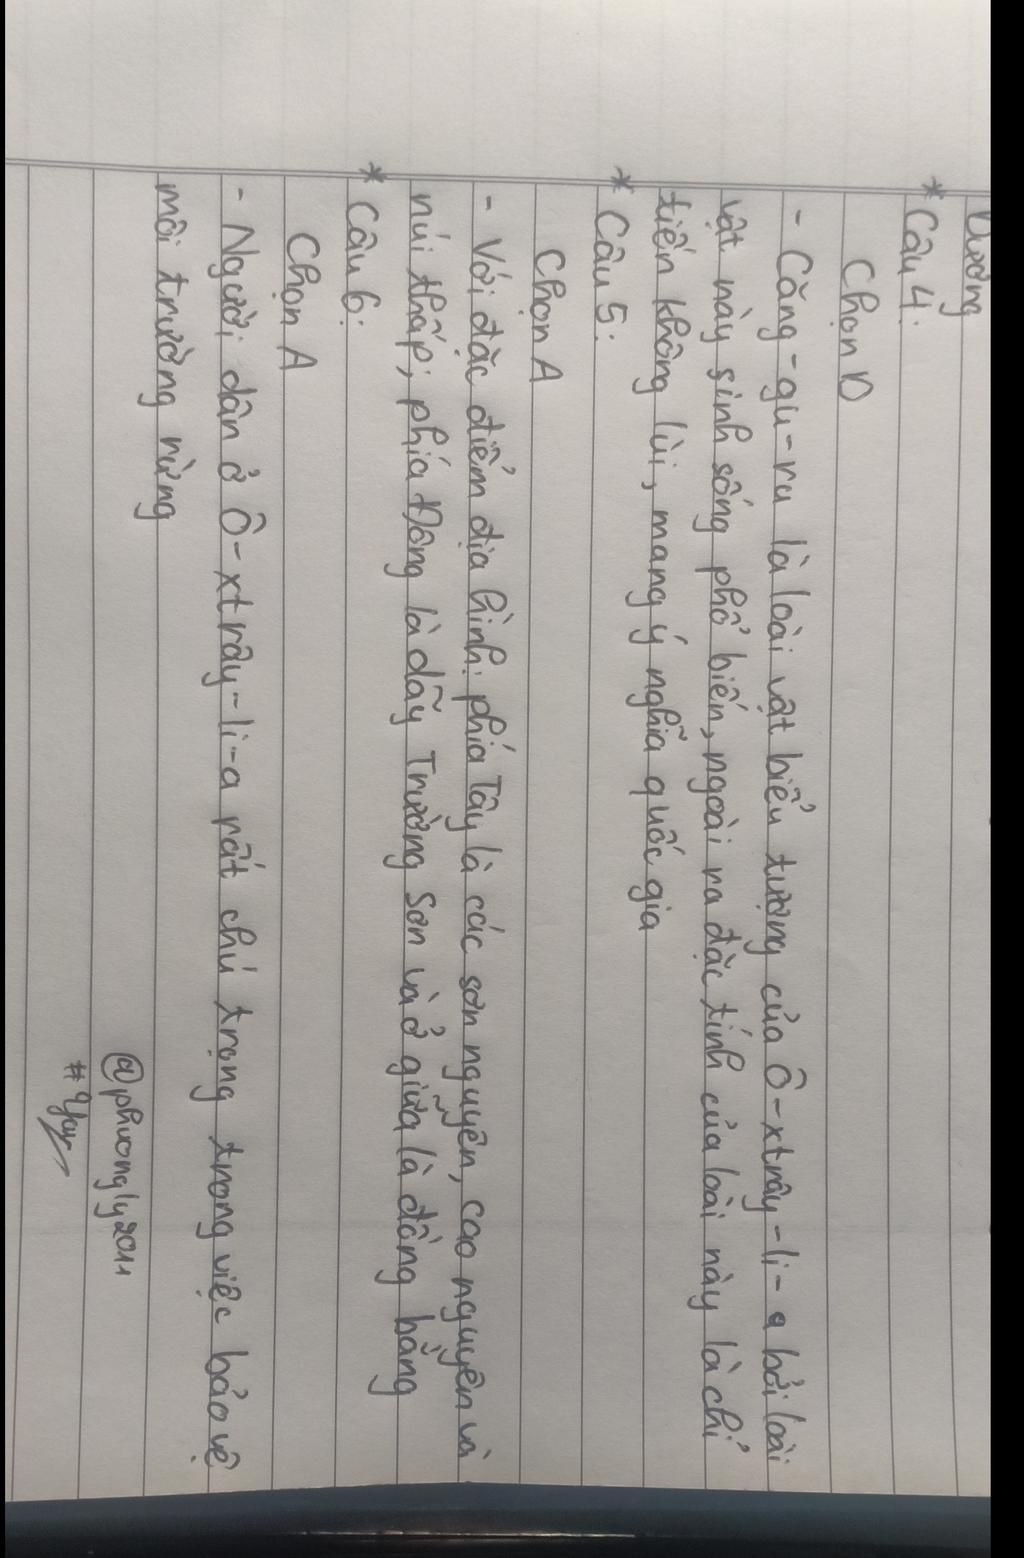 Dương
* Câu 4:
Chọn D
- Căng-gu-ru là loài vật biểu tượng của Ô-xtrây-li-a bởi loài
vật này sinh sống phổ biến, ngoài ra đặc tính của loài này là chỉ
tiến không lùi, mang ý nghĩa quốc gia
* Câu 5:
Chọn A
- Với đặc điểm địa hình: phía Tây là các sơn nguyên, cao nguyên và
núi thấp; phía Đông là dãy Trường Sơn và ở giữa là đồng bằng
* Câu 6:
Chọn A
- Người dân ở Ô-xtrây-li-a rất chú trọng trong việc bảo vệ
môi trường rừng
@phuongly2011
#